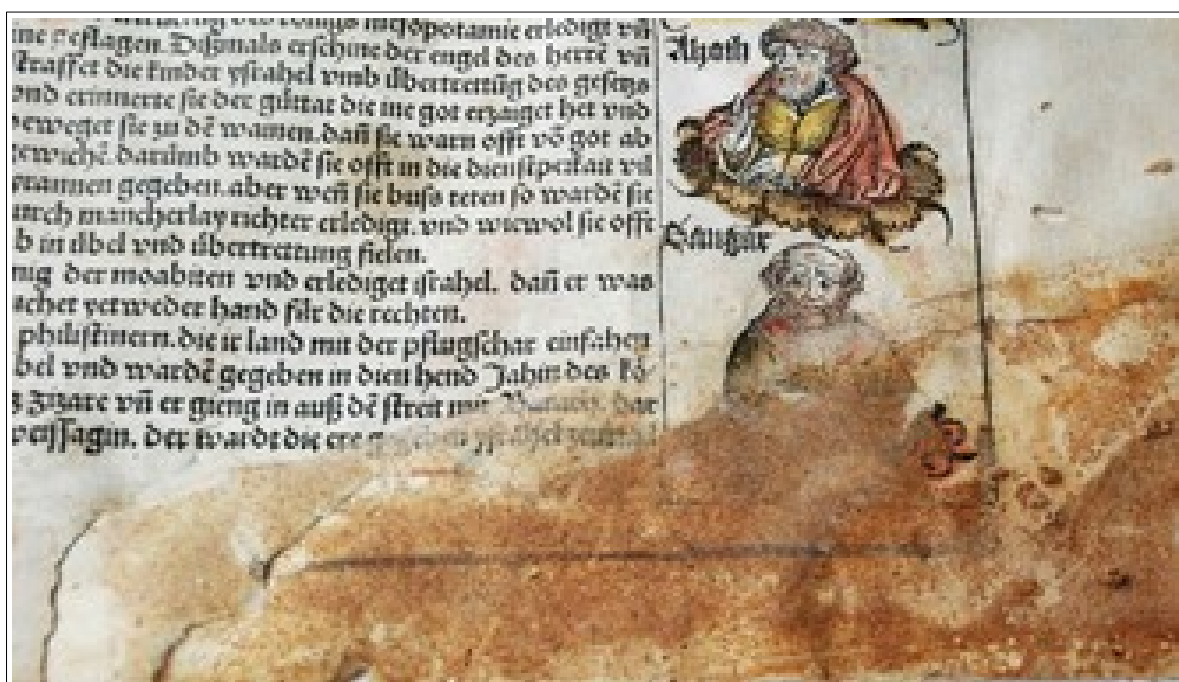 ine geslagen. Dißmals erschine der engel des herrē vñ
straffet die kinder ysrahel vmb übertrettūg des gesetzs
vnd erinnerte sie der güttat die ine got erzaiget het vnd
beweget sie zu dē wainen. dañ sie warn offt vō got ab
gewichē. darumb wardē sie offt in die dienstperkait vil
tyrannen gegeben. aber weñ sie buss teten so wardē sie
durch mancherlay richter erledigt. vnd wiewol sie offt
b in übel vnd übertrettung fielen.
nig der moabiten vnd erlediget israhel. dañ er was
achet yetweder hand für die rechten.
philistinern. die ir land mit der pflugschar einfahen
bel vnd wardē gegeben in dien hend Jabin des kö
Zizare vñ er gieng in auß dē streit mit
weissagin. der wardt die ere
Ahoth
Sangar